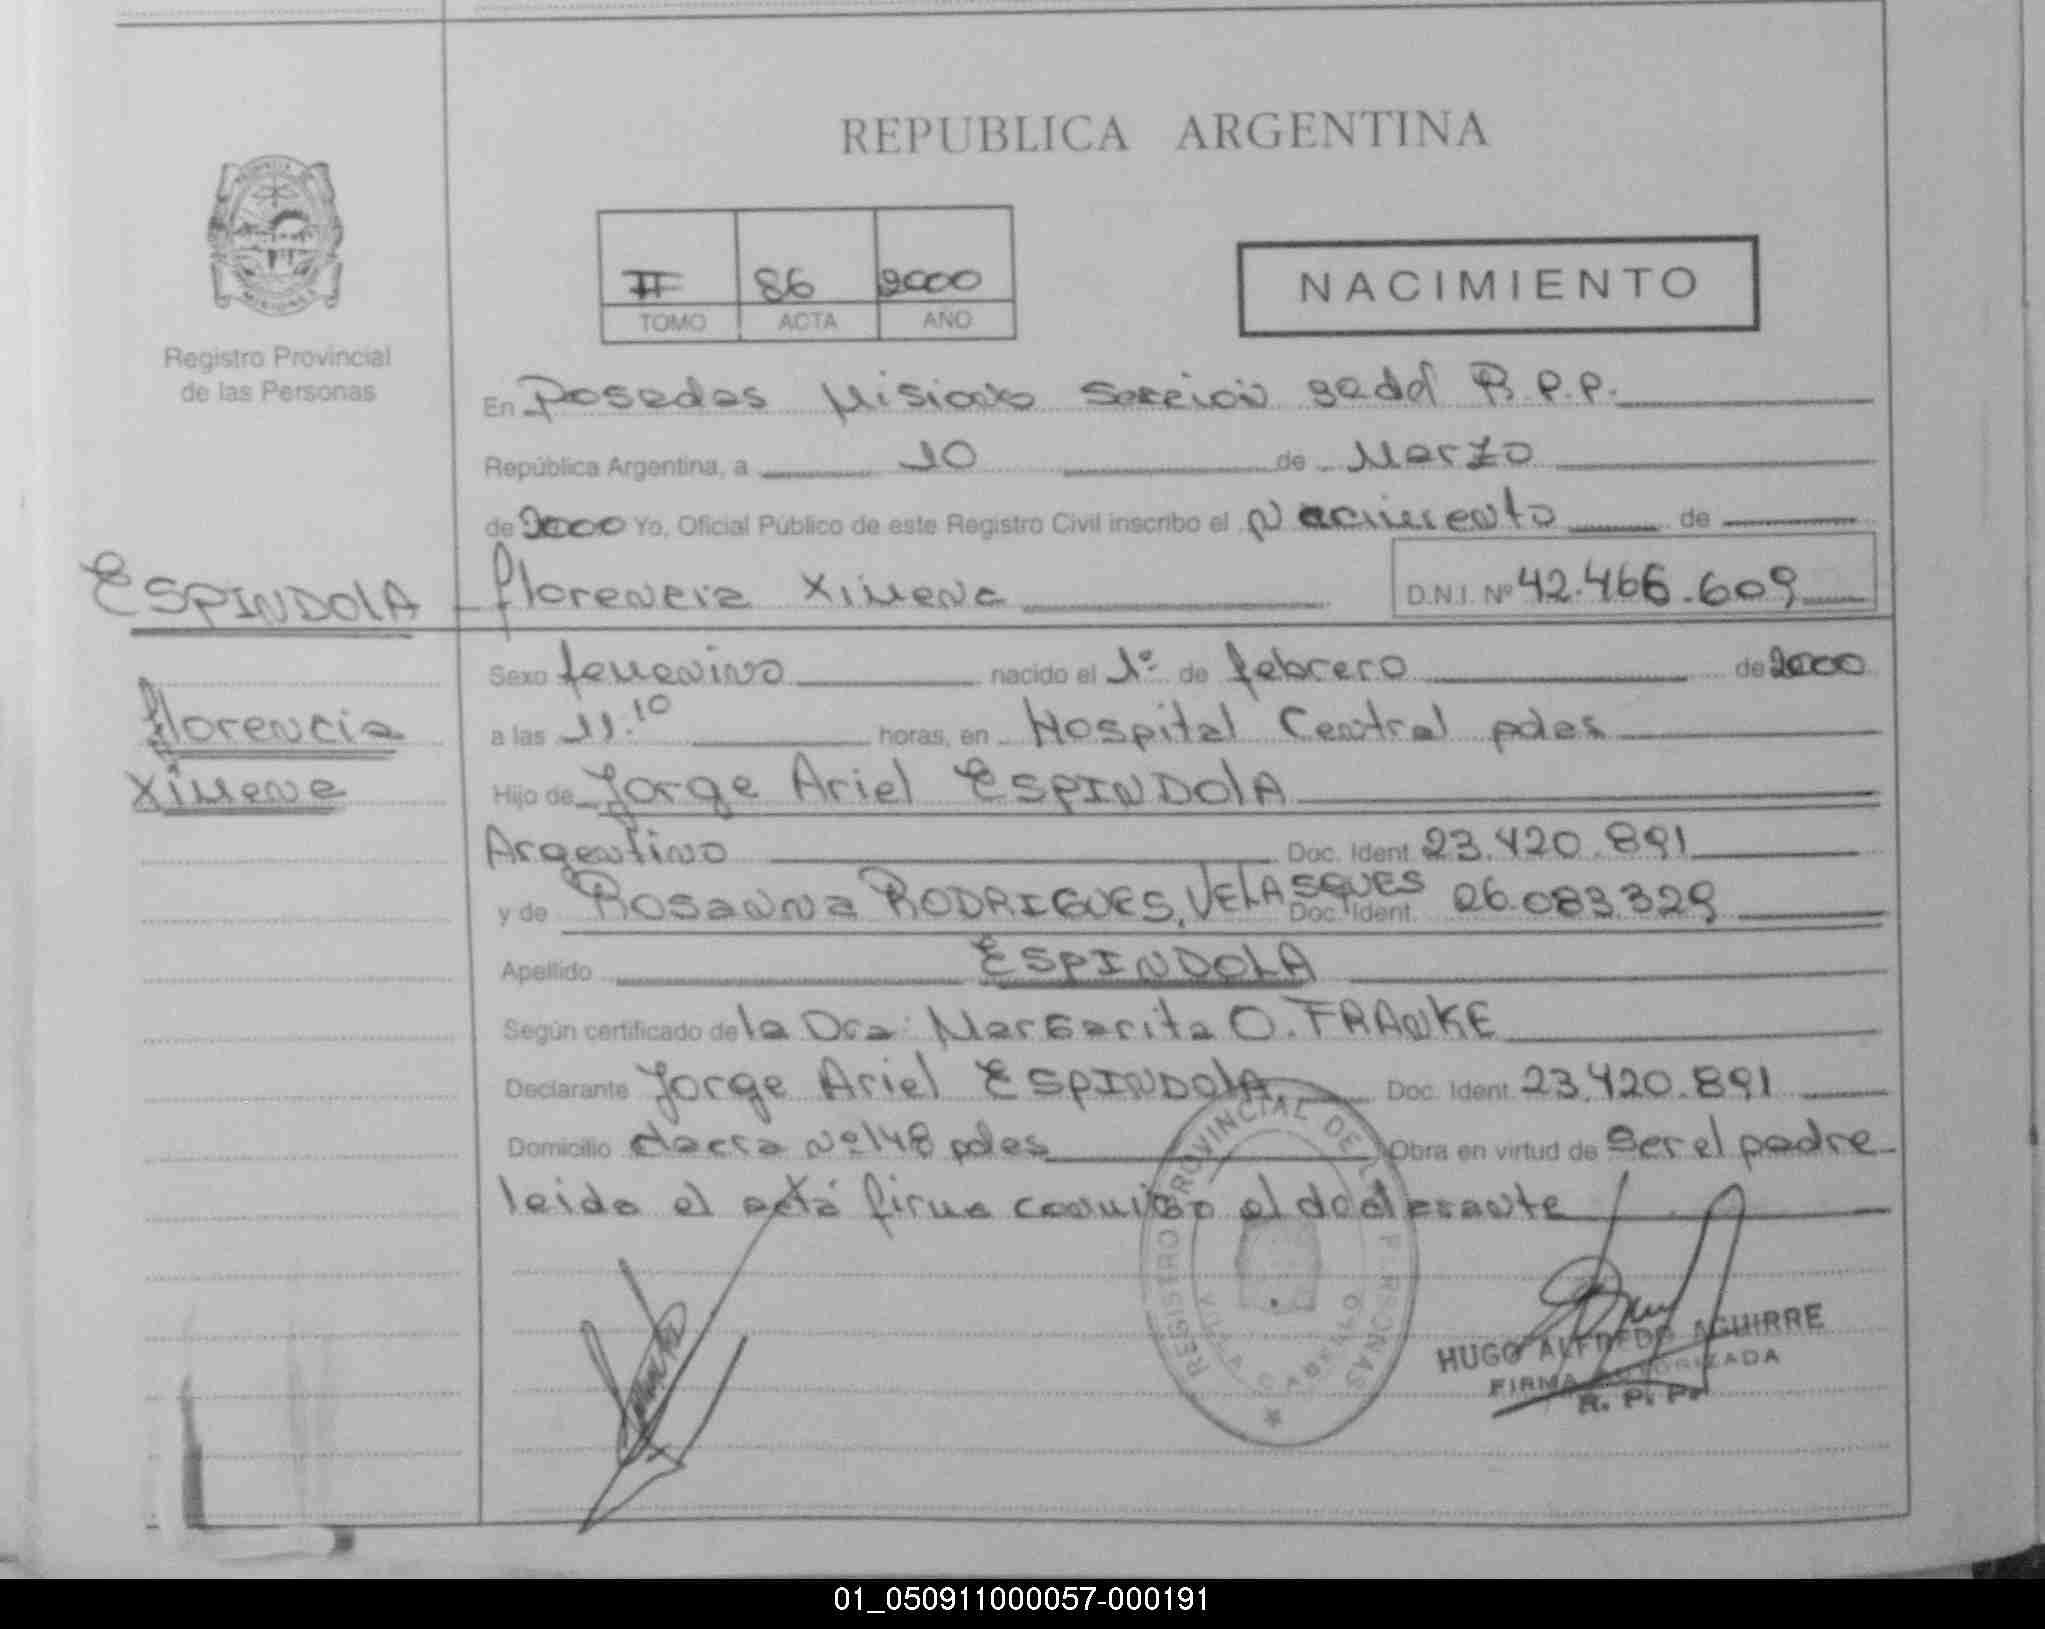 REPUBLICA ARGENTINA
II 86 2000
TOMO ACTA AÑO
NACIMIENTO
Registro Provincial
de las Personas
En Posadas Misiones Sección R.P.P.
República Argentina, a 10 de Marzo
de 2000 Yo, Oficial Público de este Registro Civil inscribo el Nacimiento de
ESPINDOLA
florencia Ximena D.N.I. Nº 42.466.609
Sexo femenino nacido el 1º de febrero de 2000
florencia
Ximena
a las 11:10 horas, en Hospital Central pdas
Hijo de Jorge Ariel ESPINDOLA
Argentino Doc. Ident. 23.420.891
y de Rosanna RODRIGUES, VELASQUES Doc. Ident. 26.083.329
Apellido ESPINDOLA
Según certificado de la Dra: Margarita O. FRANKE
Declarante Jorge Ariel ESPINDOLA, Doc. Ident. 23.420.891
Domicilio chacra Nº 148 pdas Obra en virtud de ser el padre
leida el acta firma conmigo el declarante
REGISTRO PROVINCIAL DE LAS PERSONAS
VILLA CABELLO
HUGO ALFREDO AGUIRRE
FIRMA AUTORIZADA
R. P. P.
01_050911000057-000191